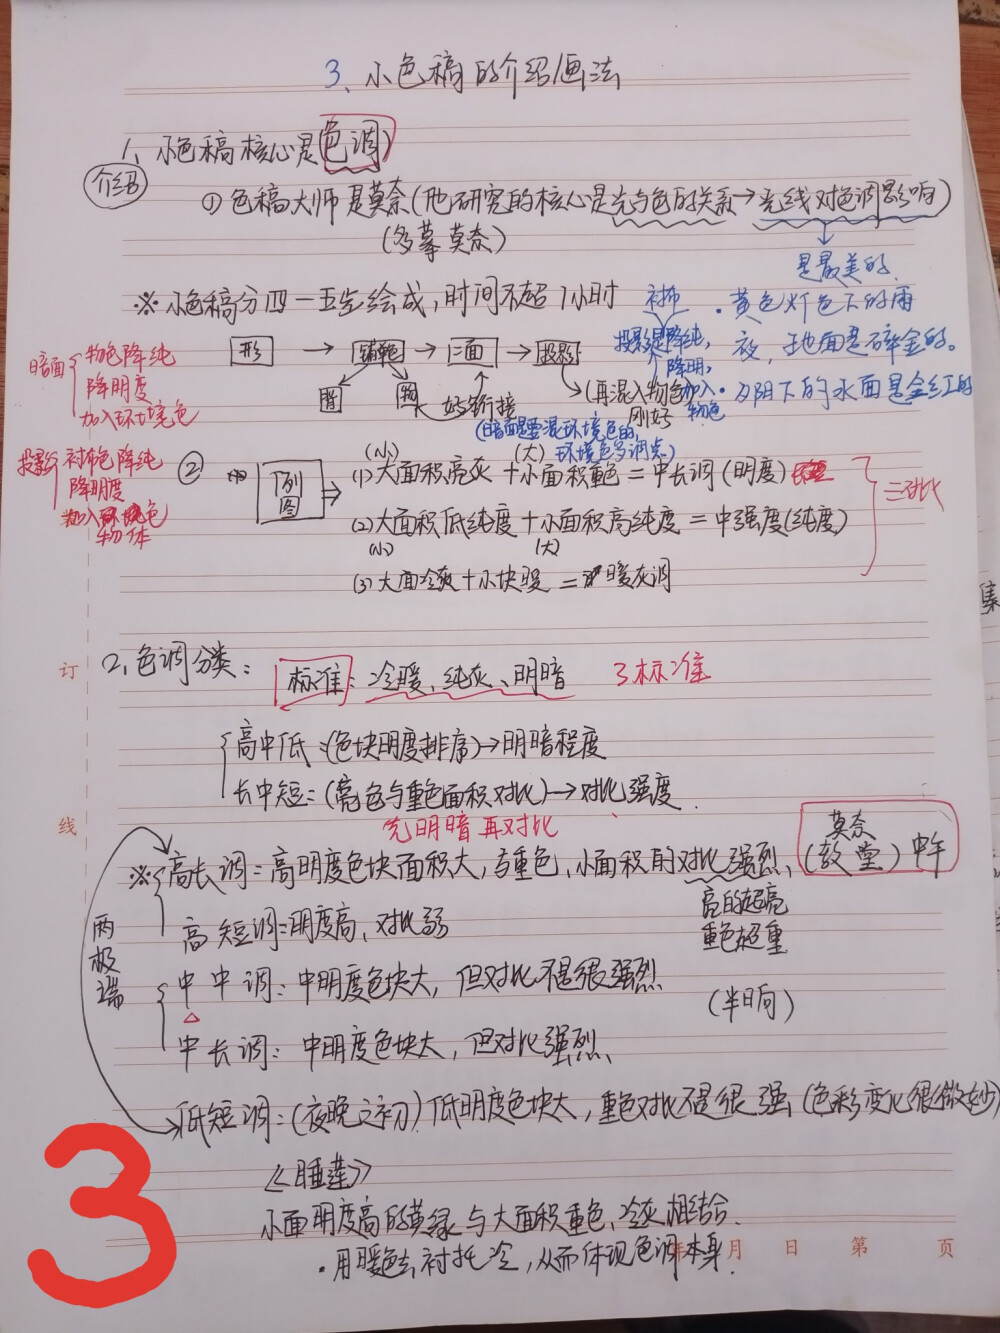 3、小色稿的介绍画法
1、小色稿核心是(色调)
介绍
①色稿大师是莫奈(他研究的核心是光与色的关系→光线对色调影响)
(多摹莫奈)
是最美的.
※小色稿分四一五步绘成,时间不超1小时
衬布
·黄色灯色下的雨夜,地面是碎金的。
·夕阳下的水面是金红的
投影是降纯,
降明,
加入
物色
暗面
物色降纯
降明度
加入环境色
形 → 铺鞄 → 二面 → 投影
暗
(再混入物色
刚好
(暗面是要混环境色的,
环境色多调点)
投影
衬布色降纯
降明度
加入环境色
物体
②
下列图 ⇒
(小)
(大)
(1)大面积亮灰+小面积重色=中长调(明度)
(2)大面积低纯度+小面积高纯度=中强度(纯度)
(小)
(大)
(3)大面冷灰+小块暖=暖灰调
三对比
2、色调分类:
标准:冷暖、纯灰、明暗
3标准
高中低:(色块明度排序)→明暗程度
长中短:(亮色与重色面积对比)→对比强度.
先明暗再对比
※高长调:高明度色块面积大,与重色、小面积的对比强烈、
莫奈
(教堂)中午
亮的超亮
重色超重
高短调:明度高、对比弱
两极端
中中调:中明度色块大,但对比不是很强烈
(半日向)
中长调:中明度色块大,但对比强烈、
低短调:(夜晚之初)低明度色块大,重色对比不是很强(色彩变化很微妙)
《睡莲》
小面明度高的黄绿与大面积重色、冷灰相结合.
·用暖色去衬托冷,从而体现色调本身.
订
线
年 月 日 第 页
3
集